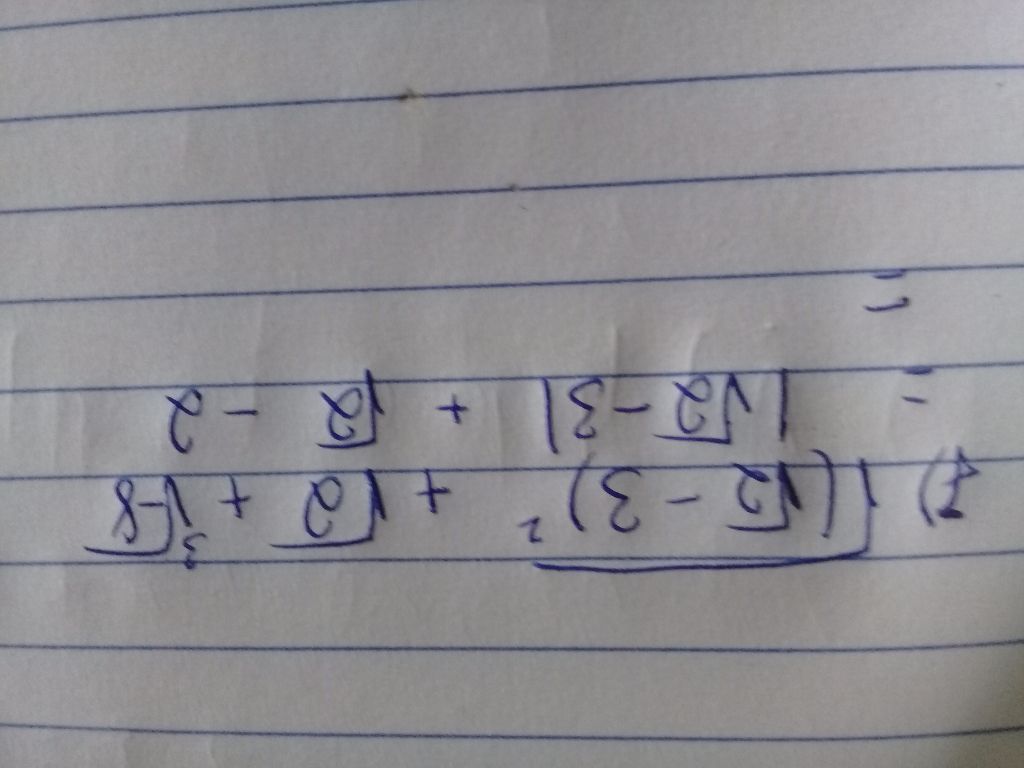 f) √(√2 - 3)² + √2 + ³√-8
= |√2 - 3| + √2 - 2
=